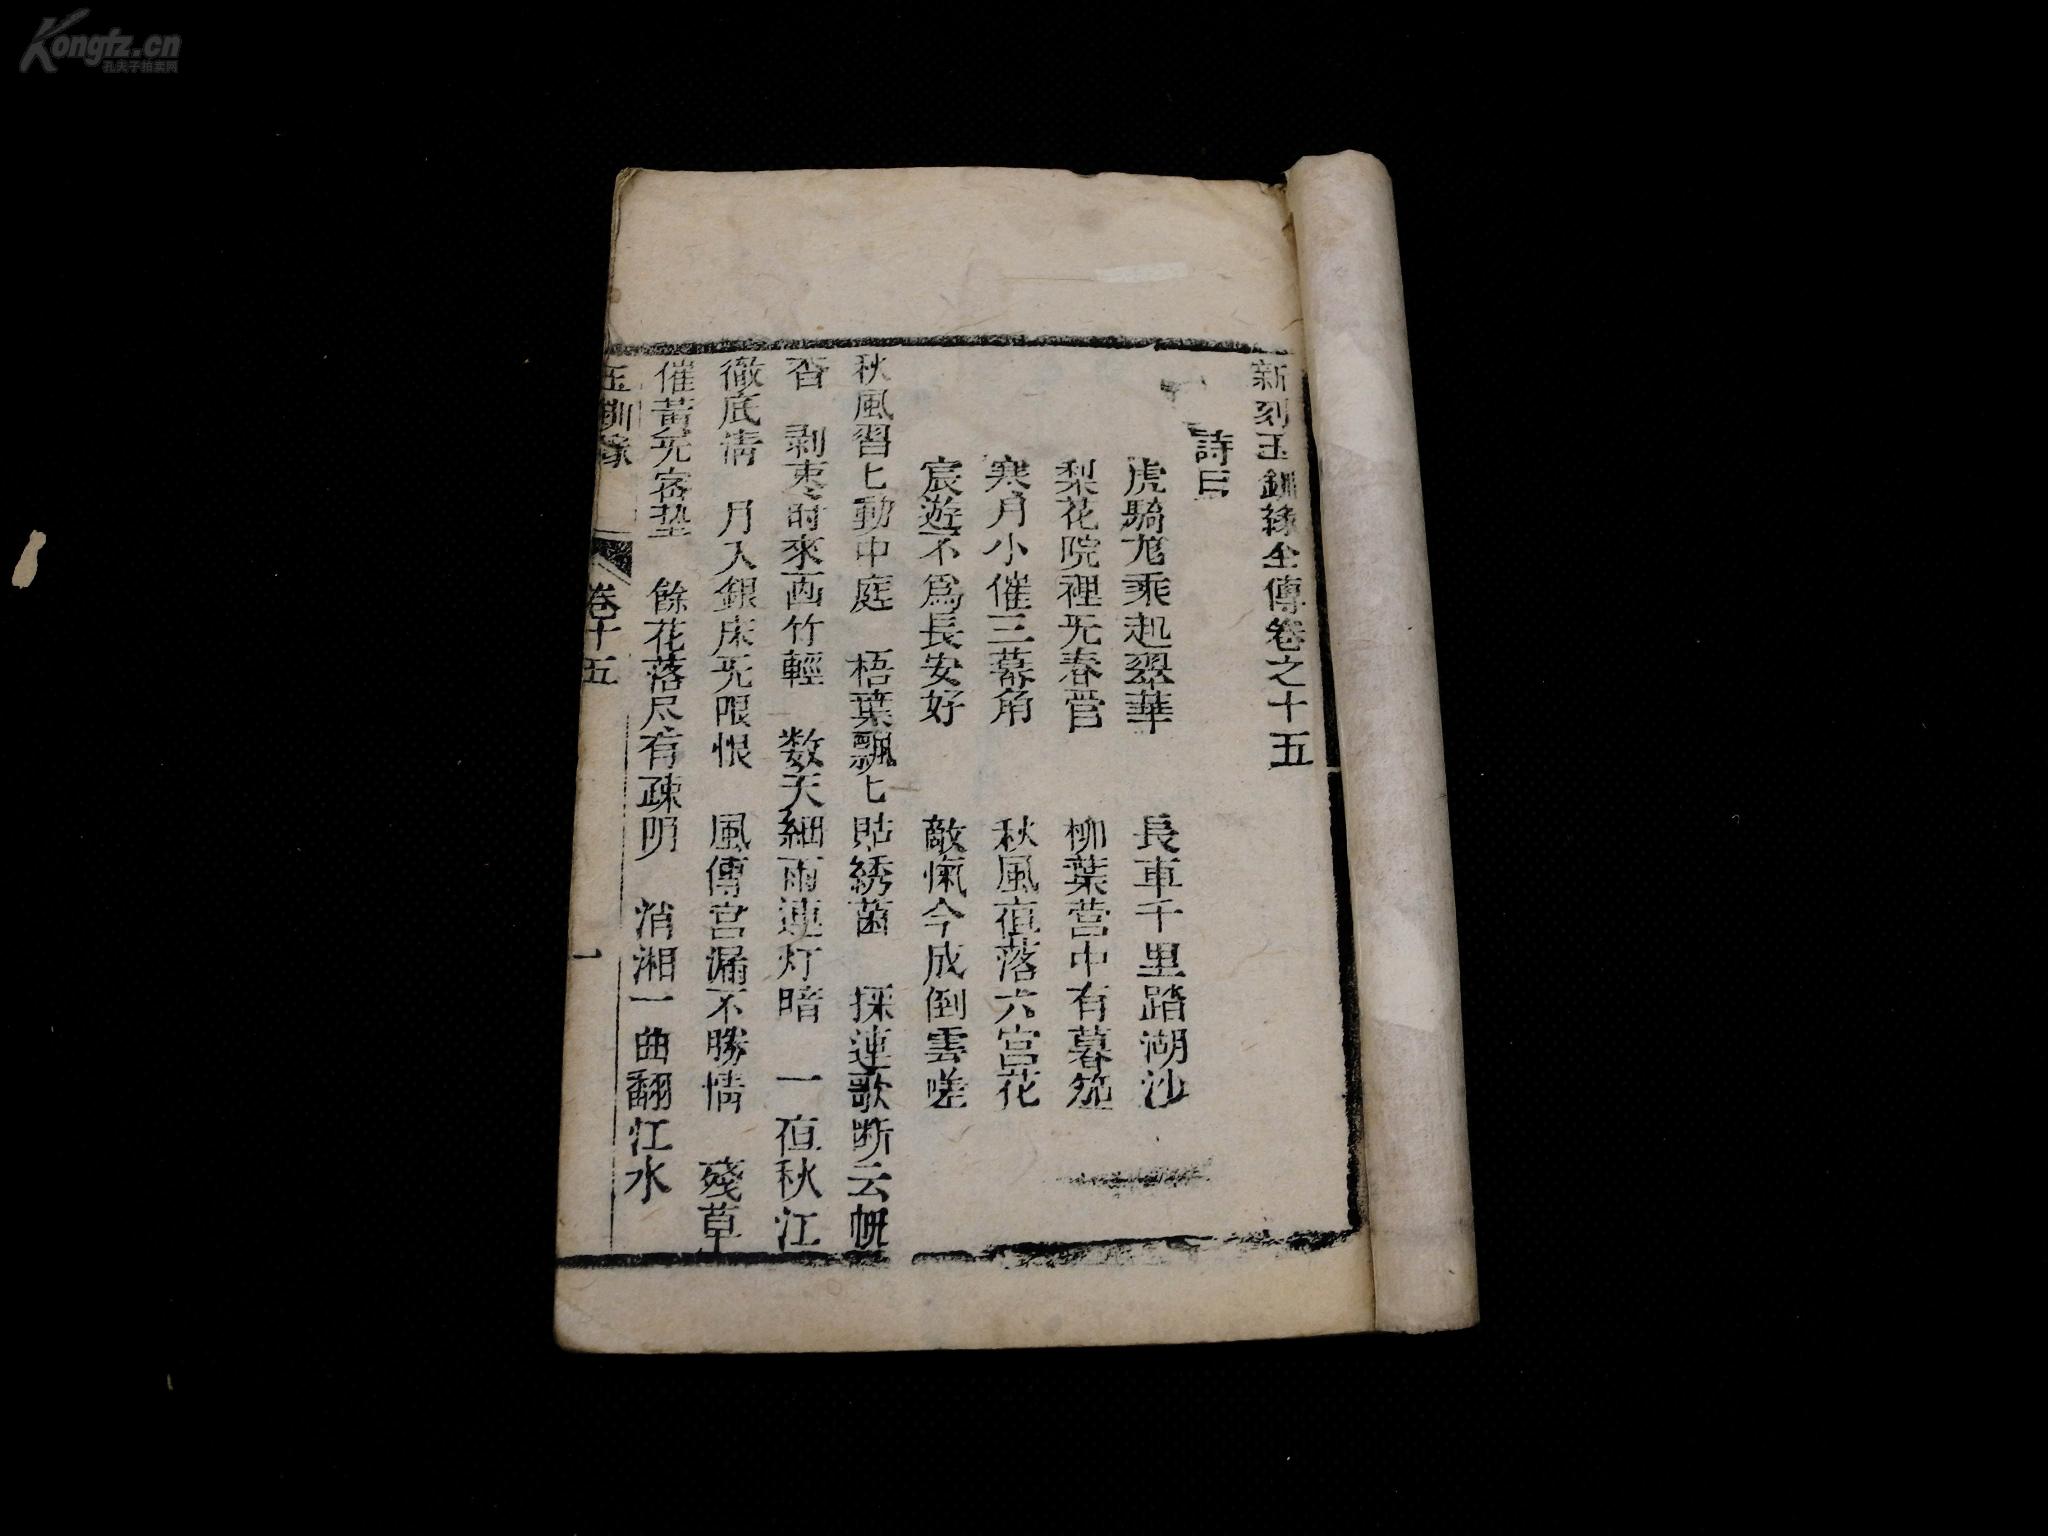 Kongfz.cn
孔夫子拍卖网
新刻玉釧緣全傳卷之十五
詩曰
虎騎尨乘起翠華 長車千里踏湖沙
梨花院裡旡春管 柳葉营中有暮笳
寒月小催三幕角 秋風宿落六宫花
宸遊不爲長安好 敵愾今成倒雲嗟
秋風習匕動中庭 梧葉飄匕貼綉茵 採連歌断云帆
杳 剥枣时來西竹輕 数天細雨連灯暗 一宿秋江
徹底清 月入銀床旡限恨 風傳宫漏不勝情 殘草
催黃旡客墊 餘花落尽有疎阴 消湘一曲翻江水
玉釧緣 卷十五 一